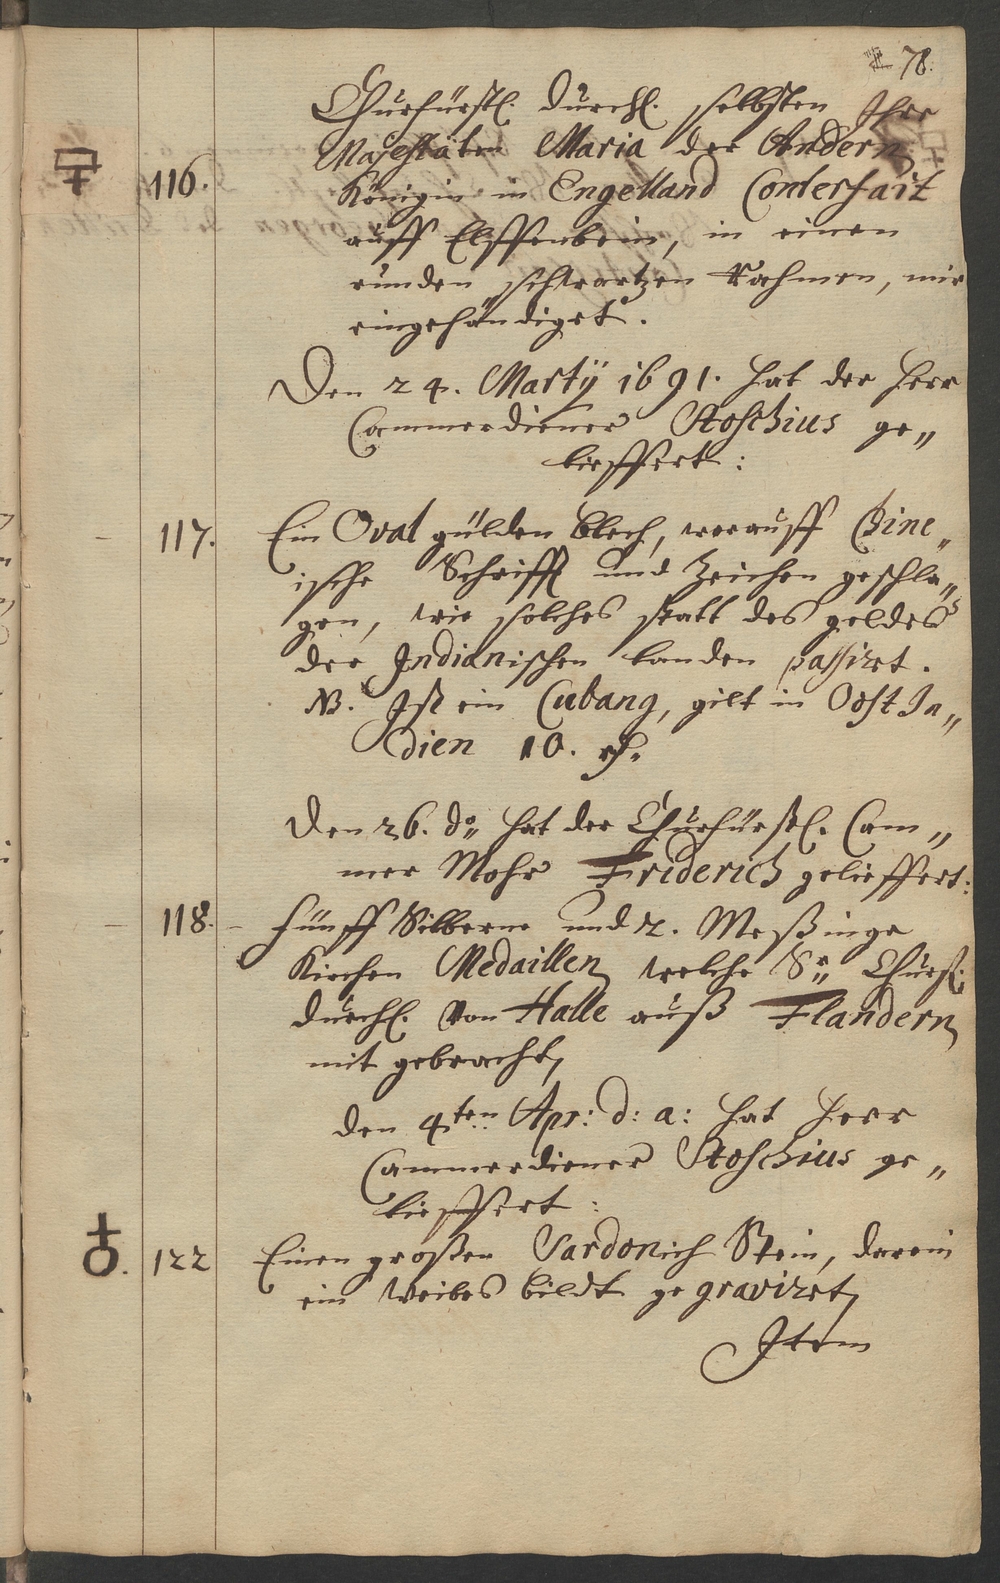 78.
Churfürstl. Durchl. selbsten Ihre
Majestäten Maria der Andern
116. Königin in Engelland Conterfait
auff Elffenbein, in einen
runden schwartzen Rahmen, mir
eingehändiget.
Den 24. Martÿ 1691. hat der Herr
Cammerdiener Stoschius ge„
lieffert:
117. Ein Oval gülden blech, worauff Chine„
ische Schrifft und Zeichen geschla„
gen, wie solches statt des geldes
der Indianischen landen passiret.
NB. Ist ein Cubang, gilt in Oost In„
dien 10. rh.
Den 26. do„ hat der Churfürstl. Cam„
mer Mohr Friderich gelieffert:
118. Fünff Silberne und 2. Meßinge
Kirchen Medaillen welche Sr„ Churf.
Durchl. von Halle auß Flandern
mit gebracht,
den 4ten Apr: d: a: hat Herr
Cammerdiener Stoschius ge„
lieffert:
122 Einen großen Sardonich Stein, darein
ein Weibes bildt gegraviret,
Item